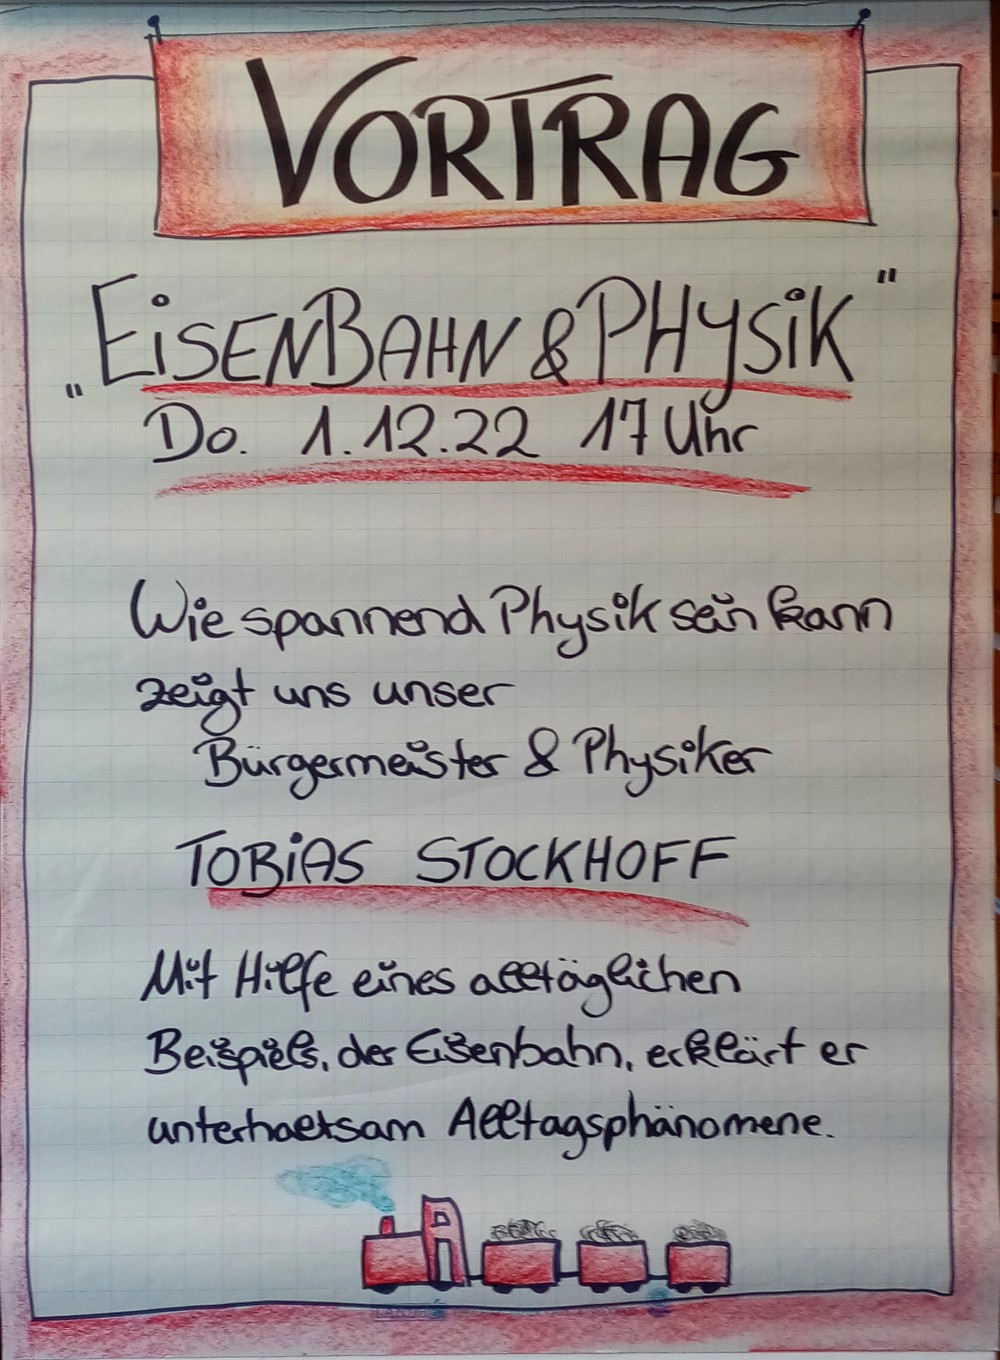 VORTRAG
„EiSENBAHN & PHYSiK"
Do. 1.12.22 17 Uhr
Wie spannend Physik sein kann
zeigt uns unser
Bürgermeister & Physiker
TOBiAS STOCKHOFF
Mit Hilfe eines alltäglichen
Beispiels, der Eisenbahn, erklärt er
unterhaltsam Alltagsphänomene.